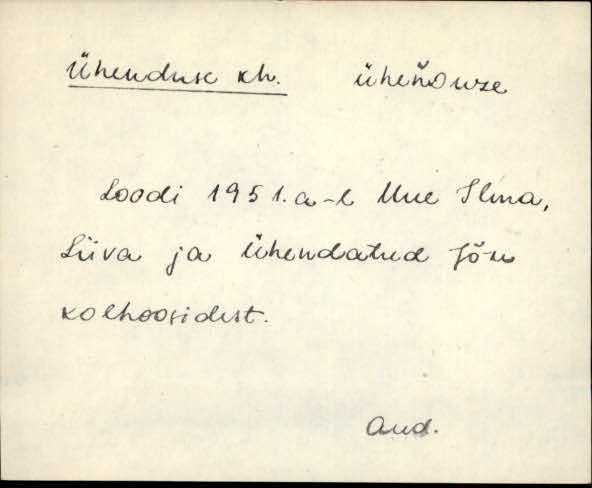 Ühenduse kh. üheňʙuze
Loodi 1951.a-l Uue Ilma,
Liiva ja Ühendatud Jõu
kolhoosidest.
Aud.